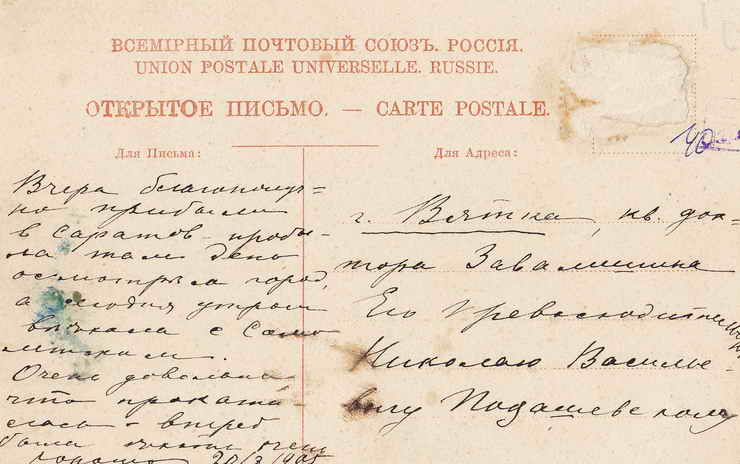 ВСЕМІРНЫЙ ПОЧТОВЫЙ СОЮЗЪ. РОССІЯ.
UNION POSTALE UNIVERSELLE. RUSSIE.
ОТКРЫТОЕ ПИСЬМО. — CARTE POSTALE.
Для Письма:
Вчера благополуч=
но прибыли
в Саратов - пробы-
ла там день
осмотрѣла город,
а сегодня утром
выехала с
Очень довольна
что проката-
лась -
была очень
хорошо 20/3 1905
Для Адреса:
40
г. Вятка, кв. док-
тора Завалишина
Его Превосходительству
Николаю Василье-
вичу Подашевскому